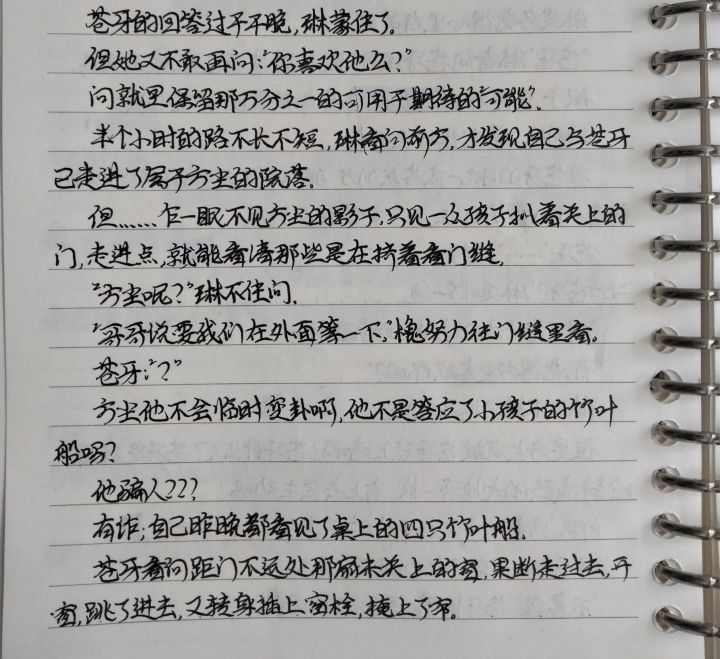 苍牙的回答过于干脆,琳蒙住了。
但她又不敢再问:“你喜欢他么?”
问就里保留那万分之一的可用于期待的“可能”。
半个小时的路不长不短,琳看向前方,才发现自己与苍牙
已走进了属于方尘的院落。
但……乍一眼不见方尘的影子,只见一众孩子扒着关上的
门,走进点,就能看清那些是在挤着看门缝。
“方尘呢?”琳不住问。
“哥哥说要我们在外面等一下,”槐努力往门缝里看。
苍牙:“?”
方尘他不会临时变卦啊,他不是答应了小孩子的竹叶
船吗?
他骗人???
有诈,自己昨晚都看见了桌上的四只竹叶船。
苍牙看向距门不远处那扇未关上的窗,果断走过去,开
窗,跳了进去,又转身插上窗栓,掩上了帘。